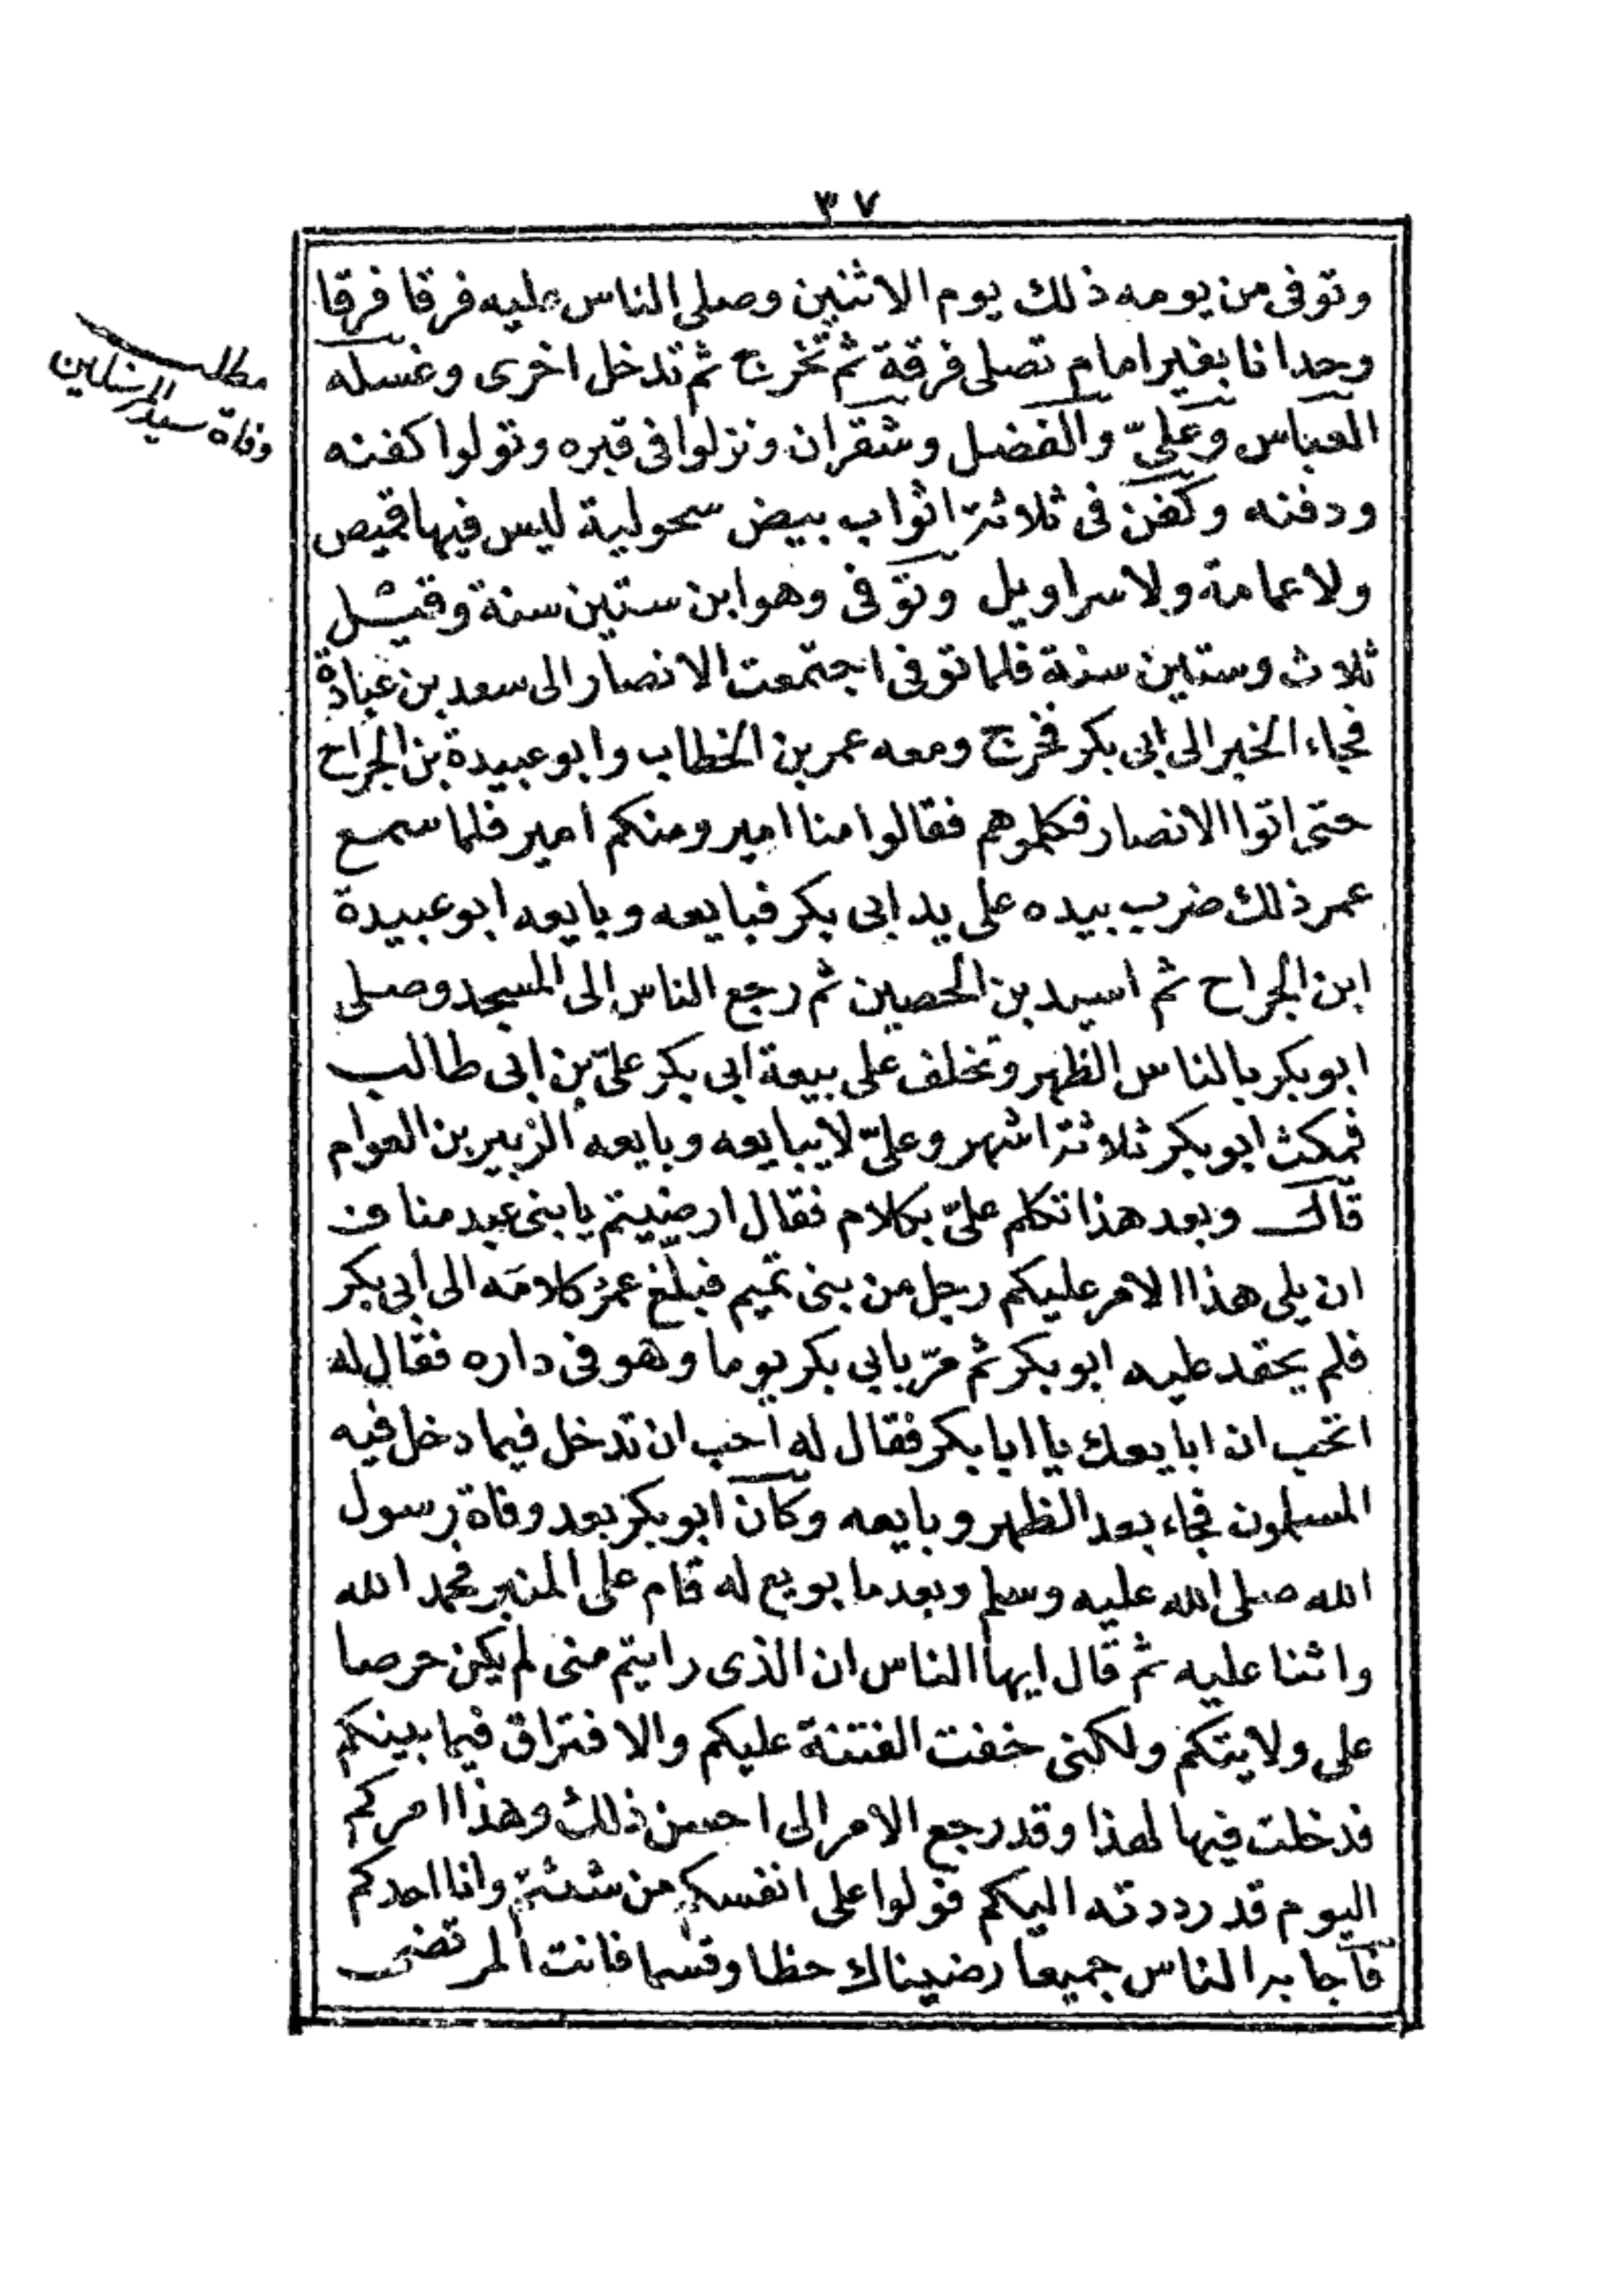 ٣٧
وتوفى من يومه ذلك يوم الاثنين وصلى الناس عليه فرقا فرقا
وحدانا بغير امام تصلى فرقة ثم تخرج ثم تدخل اخرى وغسله
العباس وعلىّ والفضل وشقران ونزلوا فى قبره وتولوا كفنه
ودفنه وكفن فى ثلاثة اثواب بيض سحولية ليس فيها قميص
ولا عمامة ولا سراويل وتوفى وهو ابن ستين سنة وقيل
ثلاث وستين سنة فلما توفى اجتمعت الانصار الى سعد بن عبادة
فجاء الخبر الى ابى بكر فخرج ومعه عمر بن الخطاب وابو عبيدة بن الجراح
حتى اتوا الانصار فكلموهم فقالوا منا امير ومنكم امير فلما سمع
عمر ذلك ضرب بيده على يد ابى بكر فبايعه وبايعه ابو عبيدة
ابن الجراح ثم اسيد بن الحصين ثم رجع الناس الى المسجد وصلى
ابو بكر بالناس الظهر وتخلف على بيعة ابى بكر علىّ بن ابى طالب
فمكث ابو بكر ثلاثة اشهر وعلىّ لا يبايعه وبايعه الزبير بن العوام
قال وبعد هذا تكلم علىّ بكلام فقال ارضيتم يا بنى عبد مناف
ان يلى هذا الامر عليكم رجل من بنى تميم فبلغ عمر كلامه الى ابى بكر
فلم يحقد عليه ابو بكر ثم مرّ بابى بكر يوما وهو فى داره فقال له
اتحب ان ابايعك يا ابا بكر فقال له احب ان تدخل فيما دخل فيه
المسلمون فجاء بعد الظهر وبايعه وكان ابو بكر بعد وفاة رسول
الله صلى الله عليه وسلم وبعد ما بويع له قام على المنبر فحمد الله
واثنا عليه ثم قال ايها الناس ان الذى رايتم منى لم يكن حرصا
على ولايتكم ولكنى خفت الفتنة عليكم والافتراق فيما بينكم
فدخلت فيها لهذا وقد رجع الامر الى احسن ذلك وهذا امركم
اليوم قد رددته اليكم فولوا على انفسكم من شئتم وانا احدكم
فاجابه الناس جميعا رضيناك حظا وقسما فانت المرتضى
مطلب
وفاة سيد المرسلين